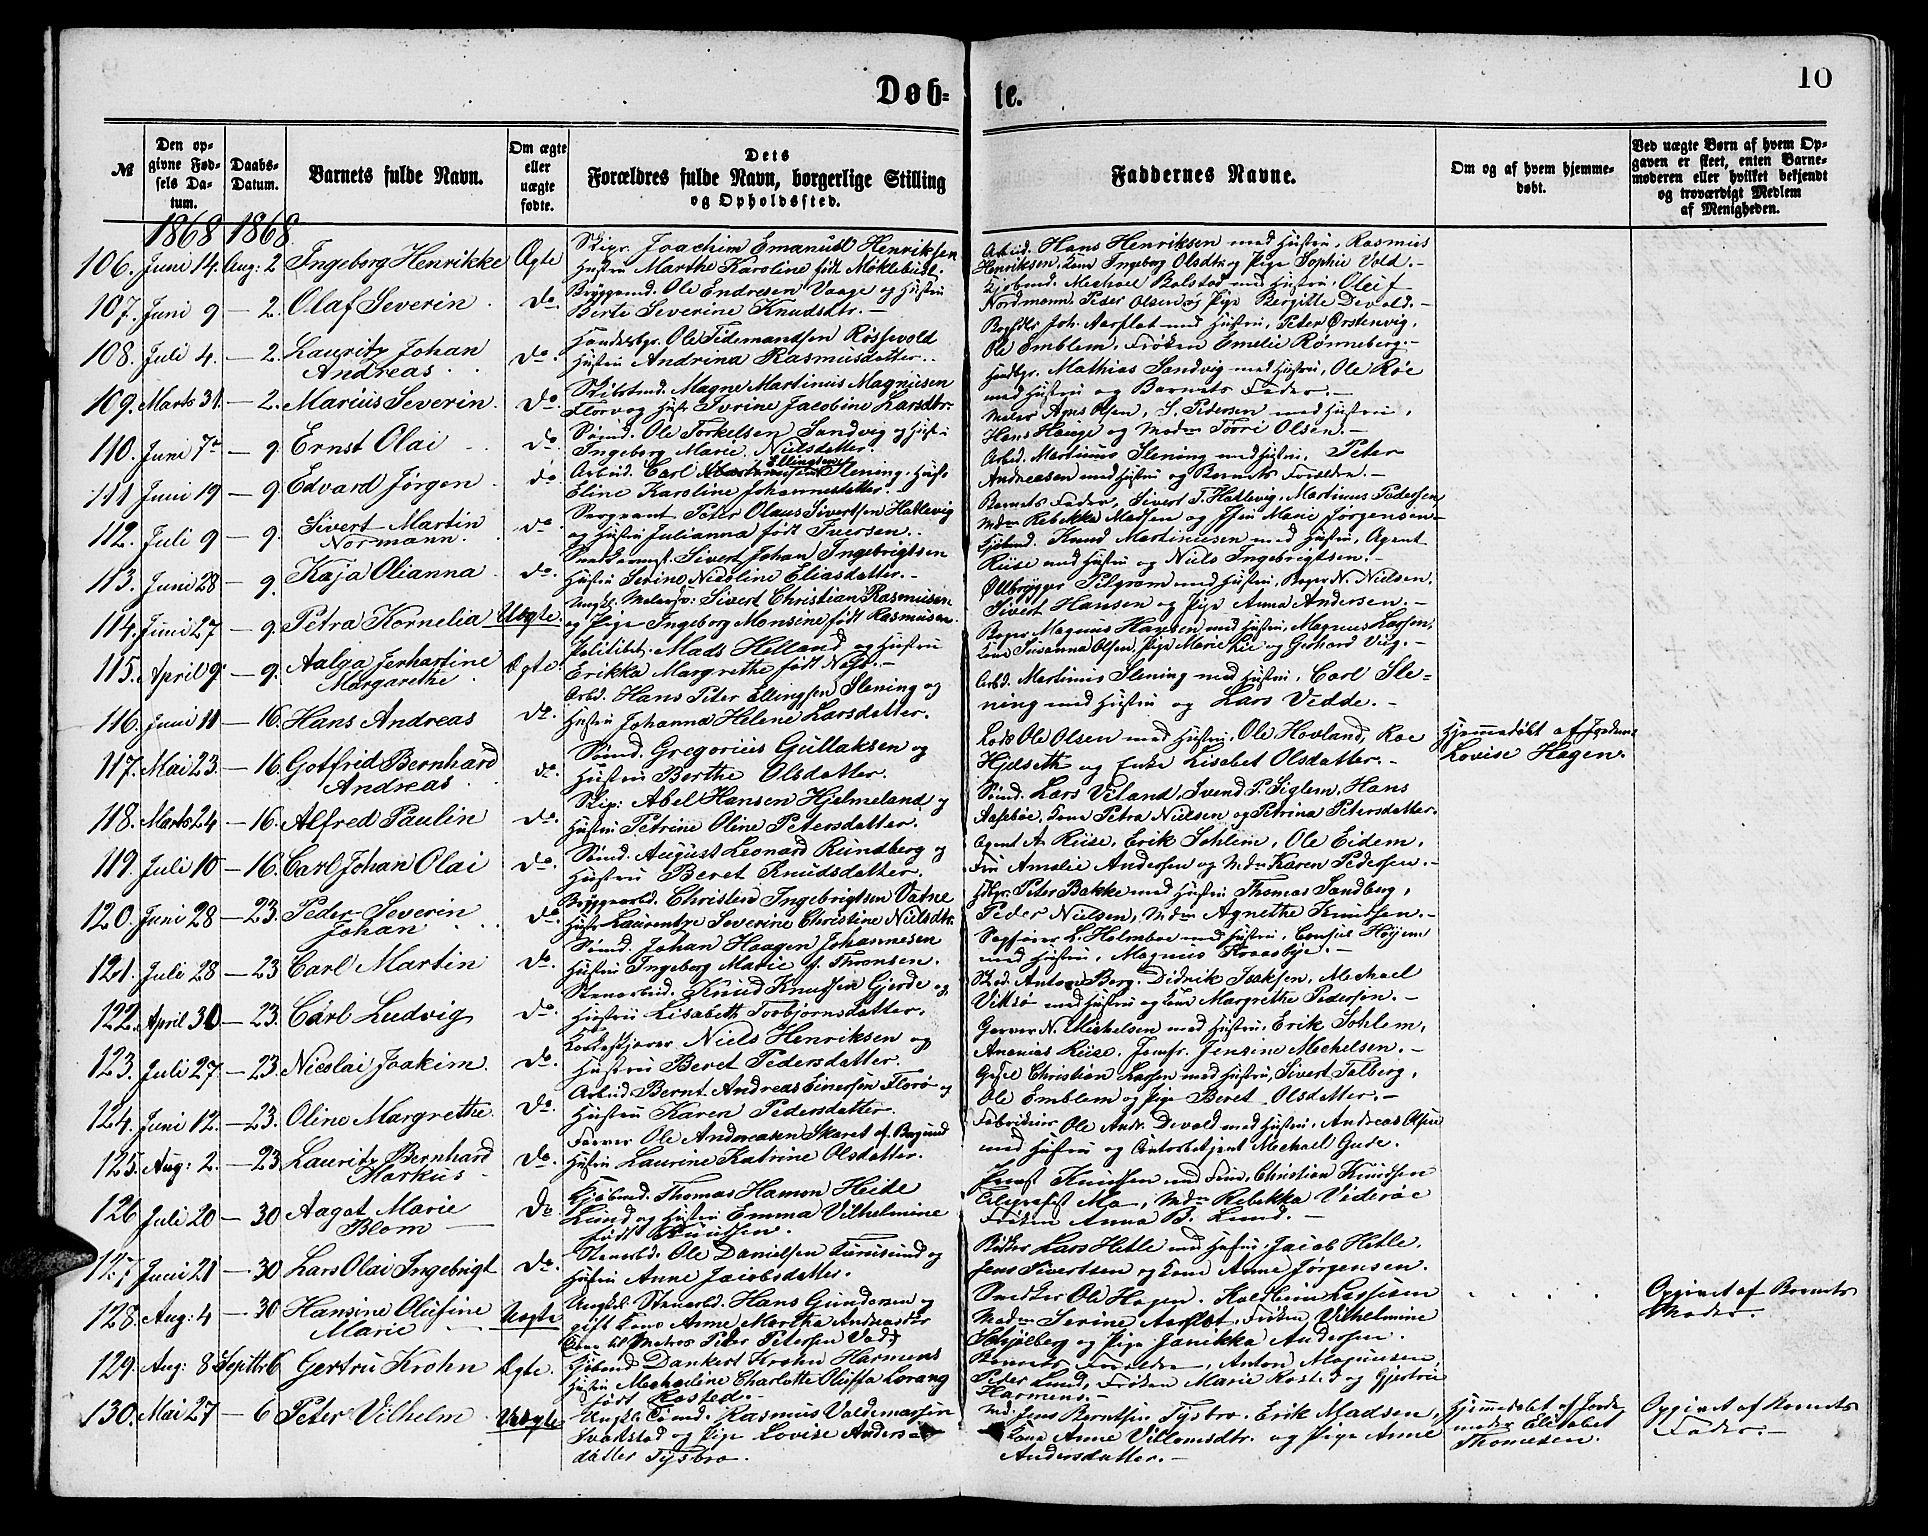 Døb-
te.
10
№
Den op-
givne Fød-
sels Da-
tum.
Daabs-
Datum.
Barnets fulde Navn.
Om ægte
eller
uægte
fødte.
Dets
Forældres fulde Navn, borgerlige Stilling
og Opholdssted.
Faddernes Navne.
Om og af hvem hjemme-
døbt.
Ved uægte Børn af hvem Op-
gaven er skeet, enten Barne-
moderen eller hvilket bekjendt
og troværdigt Medlem
af Menigheden.
1868 1868
106. Juni 14. Aug: 2 Ingeborg Henrikke Ægte
Skipr. Joachim Emanuel Henriksen
Hustru Marthe Karoline født Møklebust.
Arbeid. Hans Henriksen med Hustru, Rasmus
Henriksen, Kone Ingeborg Olsdtr og Pige Sophie Vold.-
107. Juni 9 - 2. Olaf Severin do.
Ole Endresen Vaage og Hustru
Berte Severine Knudsdtr.-
Kjøbmd. Mechael Rolstad med Hustru, Oleif
Nordmann, Peder Olsen og Pige Bergitte Devold.-
108. Juli 4. - 2. Lauritz Johan
Andreas do.
Handelsbgr. Ole Tidemandsen Røssevold
Hustru Andrina Rasmusdatter.
Joh. Aarflot med Hustru, Peter Ørstenvig,
Ole Emblem, Frøken Emelie Rønneberg.-
109. Marts 31. - 2. Marius Severin. do.
Magne Martinus Magnusen
Florvog Hustr Turine Jacobine Larsdtr
Handbgr. Mathias Sandvig med Hustru, Ole Røe
med Hustru og Barnets Fader.-
110. Juni 7de - 9. Ernst Olai do
Sømd. Ole Torkelsen Sandvig og Hustru
Ingeborg Marie Nielsdatter.
Maler Olsen, S. Pedersen med Hustru,
Hans Hauge og Madm Toori Olsen.-
111 Juni 19 - 9. Edvard Jørgen do
Arbeid. Carl Ellingsen Slening. Hustr
Eline Karoline Johannesdatter.
Arbeid. Martinus Slening med Hustru, Peter
Andreasen med Hustru og Barnets Forældre.-
112. Juli 9 - 9. Sivert Martin
Normann. do.
Sergeant Peter Olaus Sivertsen Hatlevig
og Hustru Julianna født Iversen.
Barnets Fader, Sivert T. Hatlevig, Martinus Pedersen,
Mdm Rebekka Madsen og Marie Jørgensen
113. Juni 28 - 9. Kaja Olianna do.
Sivert Johan Ingebrigtsen
Hustru Serine Nicoline Eliasdatter.-
Kjøbmd. Knud Martinussen med Hustru, Agent
Riise med Hustru og Niels Ingebrigtsen.-
114. Juni 27 - 9. Petra Kornelia Uægte.
Ungkl. Malersv: Sivert Christian Rasmussen
og Pige Ingeborg Monsine født Rasmusen.
Ølbrygger Pilgram med Hustru, N. Nielsen,
Sivert Hansen og Pige Anna Andersen.-
115. April 9. - 9. Aalga Jerhartine
Margarethe. Ægte
Politibet. Mads Helland og Hustru
Erikka Margrethe født Nass.-
Magnus Hansen med Hustru, Magnus Larsen,
Kone Susanna Olsen, Pige Marie Rie og Gerhard Viig.-
116. Juni 11 - 16. Hans Andreas do.
Arbd. Hans Peter Ellingsen Slening og
Hustru Johanna Helene Larsdatter.
Arbd. Martinus Slening med Hustru, Carl Sle-
ning med Hustru og Lars Vedde.-
117. Mai 23. - 16. Gotfrid Bernhard
Andreas. do.
Sømd. Gregorius Gullaksen og
Hustru Berthe Olsdatter.
Lods Ole Olsen med Hustru, Ole Hovland, Roe
Hjelseth og Enke Lisebet Olsdatter.-
Hjemmedøbt af Jordem
Lovise Hagen.
118. Marts 24 - 16. Alfred Paulin do.
Skip: Abel Hansen Hjelmeland og
Hustru Petrine Oline Petersdatter.
Sømd. Lars Viland, Svend P. Siglem, Hans
Aasebøe, Kone Petra Nielsen og Petrina Petersdatter.
119. Juli 10 - 16. Carl Johan Olai do.
Sømd. August Leonard Rundberg og
Hustru Beret Knudsdatter.
Agent A. Riise, Erik Sohlem, Ole Eidem,
Fru Amalie Andersen og Mdm Karen Pedersen.-
120. Juni 28 - 23. Peder Severin
Johan do.
Christen Ingebrigtsen Vatne
Hustr Laurentze Severine Christine Nielsdtr.
Hdbgr. Peter Bakke med Hustru Thomas Sandberg,
Peder Nielsen, Mdm Agnethe Knudsen.-
121. Juli 28 - 23 Carl Martin do.
Sømd. Johan Haagen Johannesen
Hustru Ingeborg Marie f. Thronsen.
Sagfører L. Holmboe med Hustru, Consul Høyem
med Hustru, Magnus Kraasbye.-
122. April 30 - 23. Carl Ludvig do.
Stenarbeid. Knud Knudsen Gjerde og
Hustru Lisabeth Torbjørnsdatter.
Anton Berg, Didrik Isaksen, Mechael
Viksø med Hustru og Kone Margrethe Pedersen.-
123. Juli 27 - 23. Nicolai Joakim. do.
Niels Henriksen og
Hustru Beret Pedersdatter.
Garver N. Michelsen med Hustru, Erik Sohlem,
Ananias Riise, Jomfr. Jensine Mechelsen.-
124. Juni 12. - 23. Oline Margrethe. do.
Arbeid Bernt Andreas Einersen Florø og
Hustru Karen Pedersdatter.
Christian Larsen med Hustru, Sivert Talberg,
Ole Emblem og Pige Beret Olsdatter.-
125. Aug: 2. - 23 Lauritz Bernhard
Markus. do.
Farver Ole Andreasen Skaret af Borgund
Hustru Laurine Katrine Olsdatter.
Fabrikeier Ole Andr. Devold med Hustru, Andreas Olsen
med Hustru og Contorbetjent Mechael Gude.
126 Juli 20 - 30 Aagot Marie
Blom do
Kjøbmd. Thomas Hamon Heide
Lund og Hustru Emma Vilhelmine
født Knudsen.
Knudsen med Frue, Christian Knudsen
Telegrafist Mo, Mdm Rebekka Viderøe
Frøken Anna B. Lund.-
127. Juni 21 - 30 Lars Olai Ingebrigt do.
Stenarbd. Ole Danielsen og
Hustru Anne Jacobsdatter.
Lars Hetle med Hustru, Jacob Hetle,
Jens Sivertsen og Kone Anne Jørgensen.
128. Aug: 4 - 30 Hansine Olufine
Marie Uægte
Ungkl. Stenarbd. Hans Gundersen og
gift Kone Anne Martha Andreasdtr
Kone til Matros Peter Petersen Vad.
Snedker Ole Hagen,
Madm Serine Aarflot, Frøken Vilhelmine
og Pige Janikka Andersen.
Opgivet af Barnets
Moder.
129. Aug: 8 Septbr 6 Gertru Krohn Ægte.
Kjøbmd Dankert Krohn Harmens
Hustru Mechaline Charlotte Oluffa Lorang
født Rosted.-
Barnets Forældre, Anton Magnusen,
Peter Lund, Frøken Marie Rosted og Gjertru
Harmens.-
130. Mai 27 - 6 Peter Vilhelm Uægte
Ungkl. Sømd. Rasmus Valdemarsen
Svakstad og Pige Lovise Anders-
datter Tysbro.
Jens Berntsen Tysbro, Erik Madsen,
Kone Anne Villomsdtr. og Pige Anne
Andersdatter.-
Hjemmedøbt af Jorde
moder Elisabet
Thomesen.
Opgivet af Barnets
Fader.-